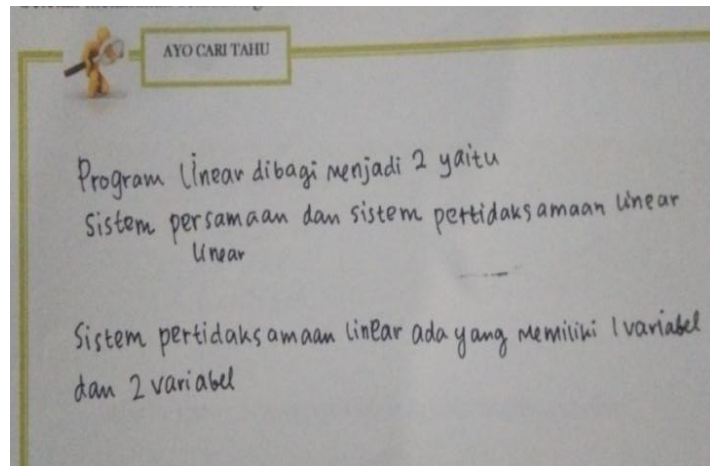 AYO CARI TAHU
Program Linear dibagi menjadi 2 yaitu
Sistem persamaan dan sistem pertidaksamaan linear
linear
Sistem pertidaksamaan linear ada yang memiliki 1 variabel
dan 2 variabel